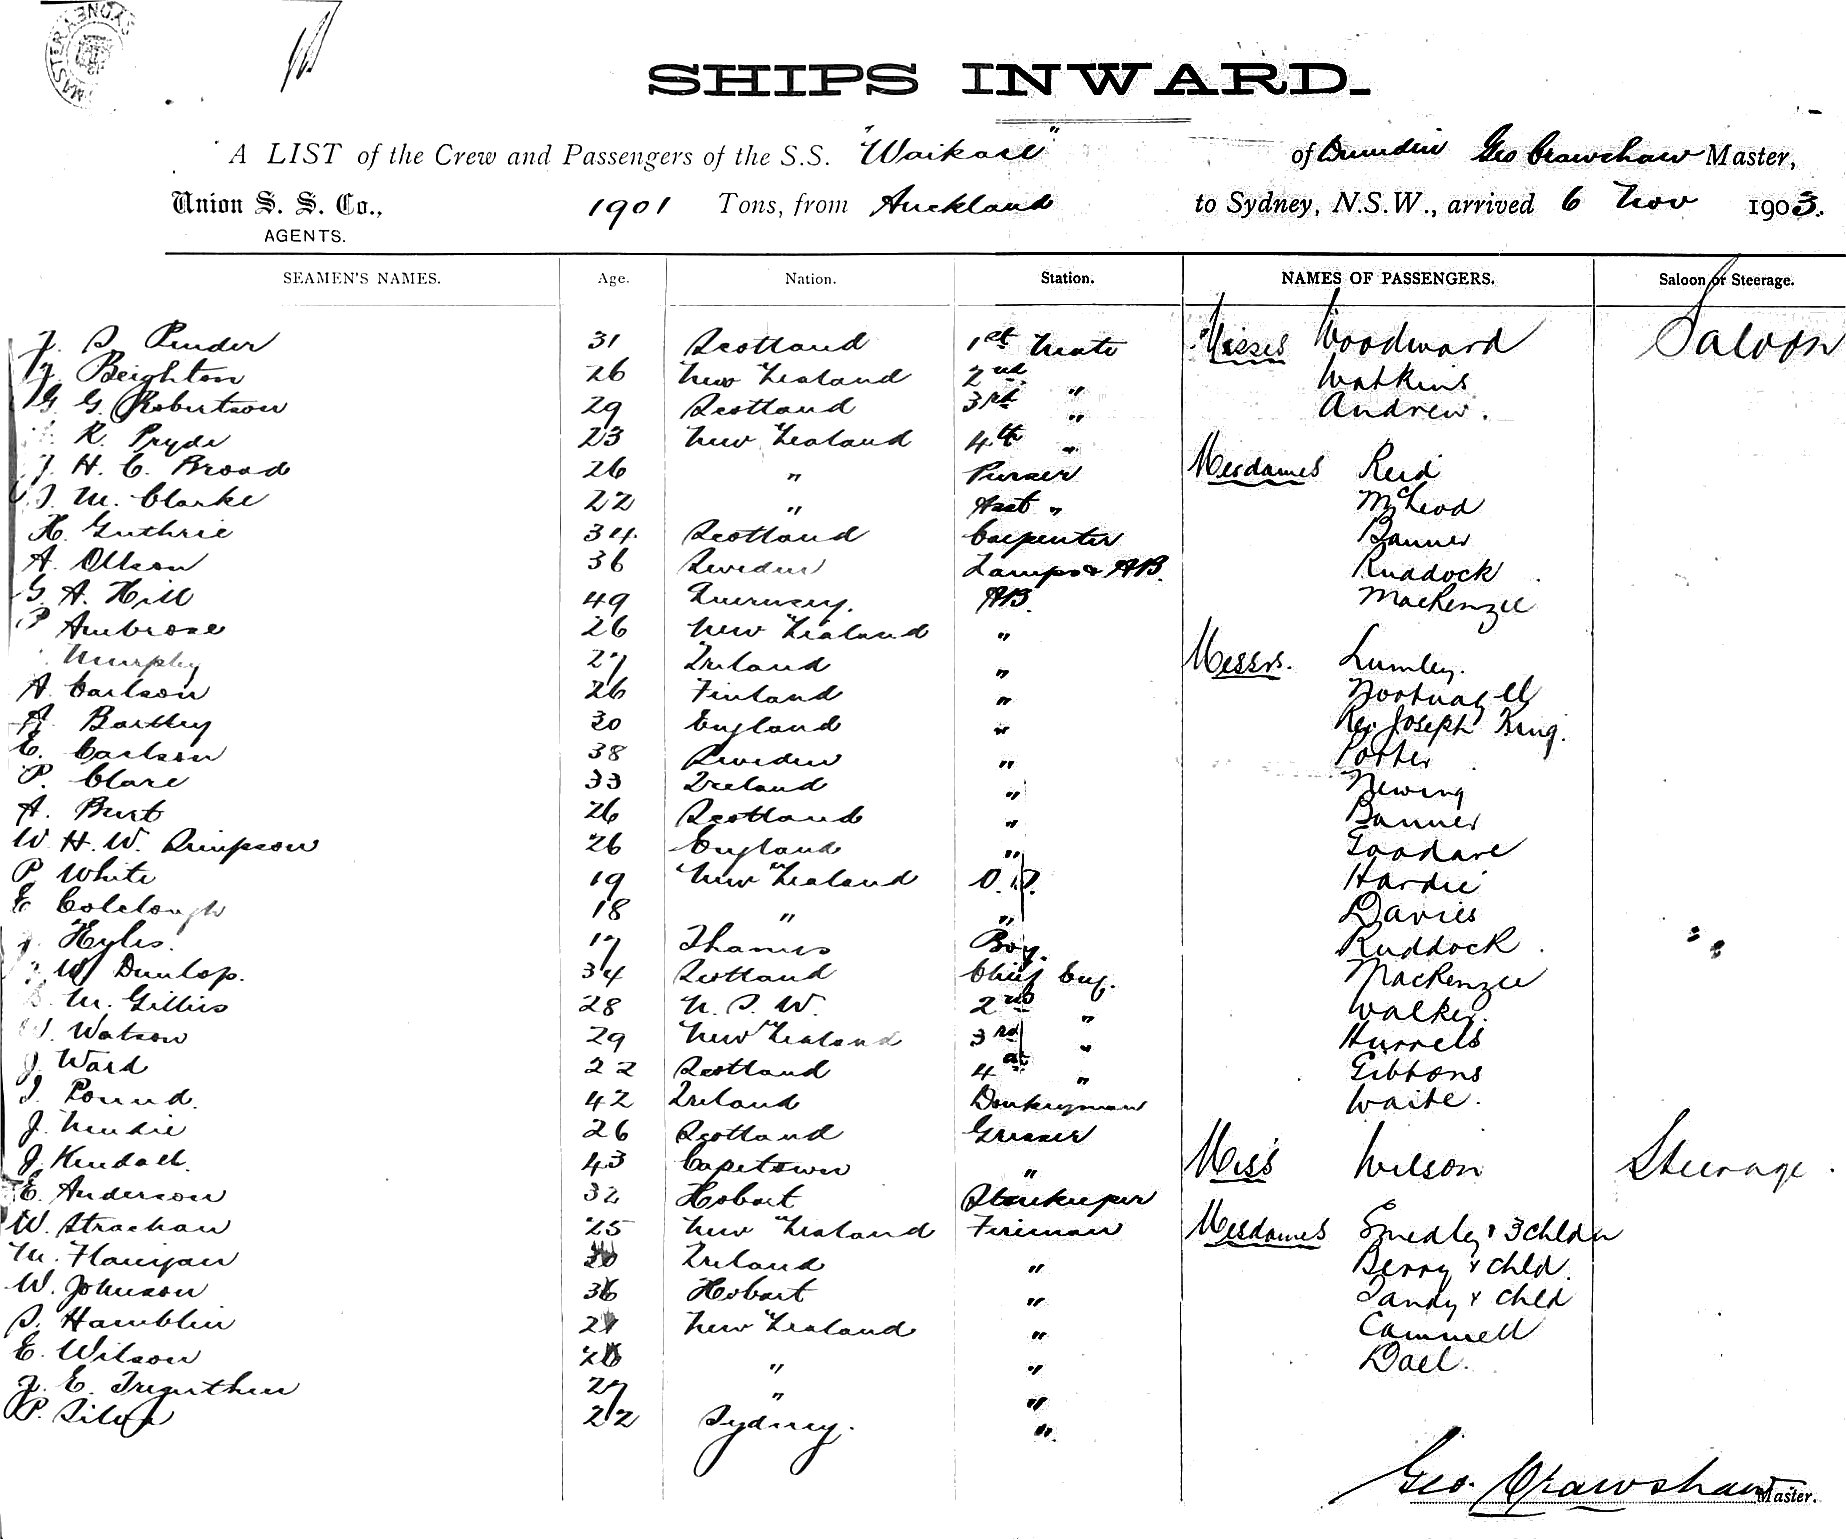 SYDNEY
MASTER
SHIPS INWARD.
A LIST of the Crew and Passengers of the S.S. "Waikare" of Dunedin Geo Crawshaw Master,
Union S. S. Co., 1901 Tons, from Auckland to Sydney, N.S.W., arrived 6 Nov 1903.
AGENTS.
SEAMEN'S NAMES. Age. Nation. Station. NAMES OF PASSENGERS. Saloon or Steerage.
S Pinder 31 Scotland 1st Mate Misses Woodward Saloon
Beighton 26 New Zealand 2nd " Watkins
G. G. Robertson 29 Scotland 3rd " Andrew.
R. Pryde 23 New Zealand 4th "
J. H. C. Broad 26 " Purser Mesdames Reid
M. Clarke 22 " Asst " McLeod
H. Guthrie 34. Scotland Carpenter Banner
A. Olsson 36 Sweden Lamps & AB. Ruddock
G A. Hill 49 Guernsey. AB. MacKenzie
P Ambrose 26 New Zealand "
Murphy 27 Ireland " Messrs. Lumley.
A. Carlson 26 Finland "
A. Bartley 30 England " Rev Joseph King.
C. Carlson 38 Sweden " Potter
P. Clare 33 Ireland " Newing
A. Burt 26 Scotland " Banner
W. H. W. Simpson 26 England " Goodare
P. White 19 New Zealand O.S. Hardie
E Colclough 18 " " Davies
J. Hyles. 17 Thames Boy. Ruddock " "
W Dunlop. 34 Scotland Chief Eng. MacKenzie
M. Gillies 28 N. S. W. 2nd " Walker.
W. Watson 29 New Zealand 3rd " Hurrels
J. Ward 22 Scotland 4th " Gibbons
J. Pound. 42 Ireland Donkeyman Waite.
J. Mudie 26 Scotland Greaser
J. Kendall. 43 Capetown " Miss Wilson Steerage.
E. Anderson 32 Hobart Storekeeper
W. Strachan 25 New Zealand Fireman Mesdames Smedley & 3 Chldn
M. Flanigan Ireland " Berry & Chld.
W. Johnson 36 Hobart " Tandy & Chld
S. Hamblin New Zealand " Cammell
E. Wilson 26 " " Dael.
J. E. Treguthen 27 " "
P. Silva 22 Sydney. "
Geo. Crawshaw Master.